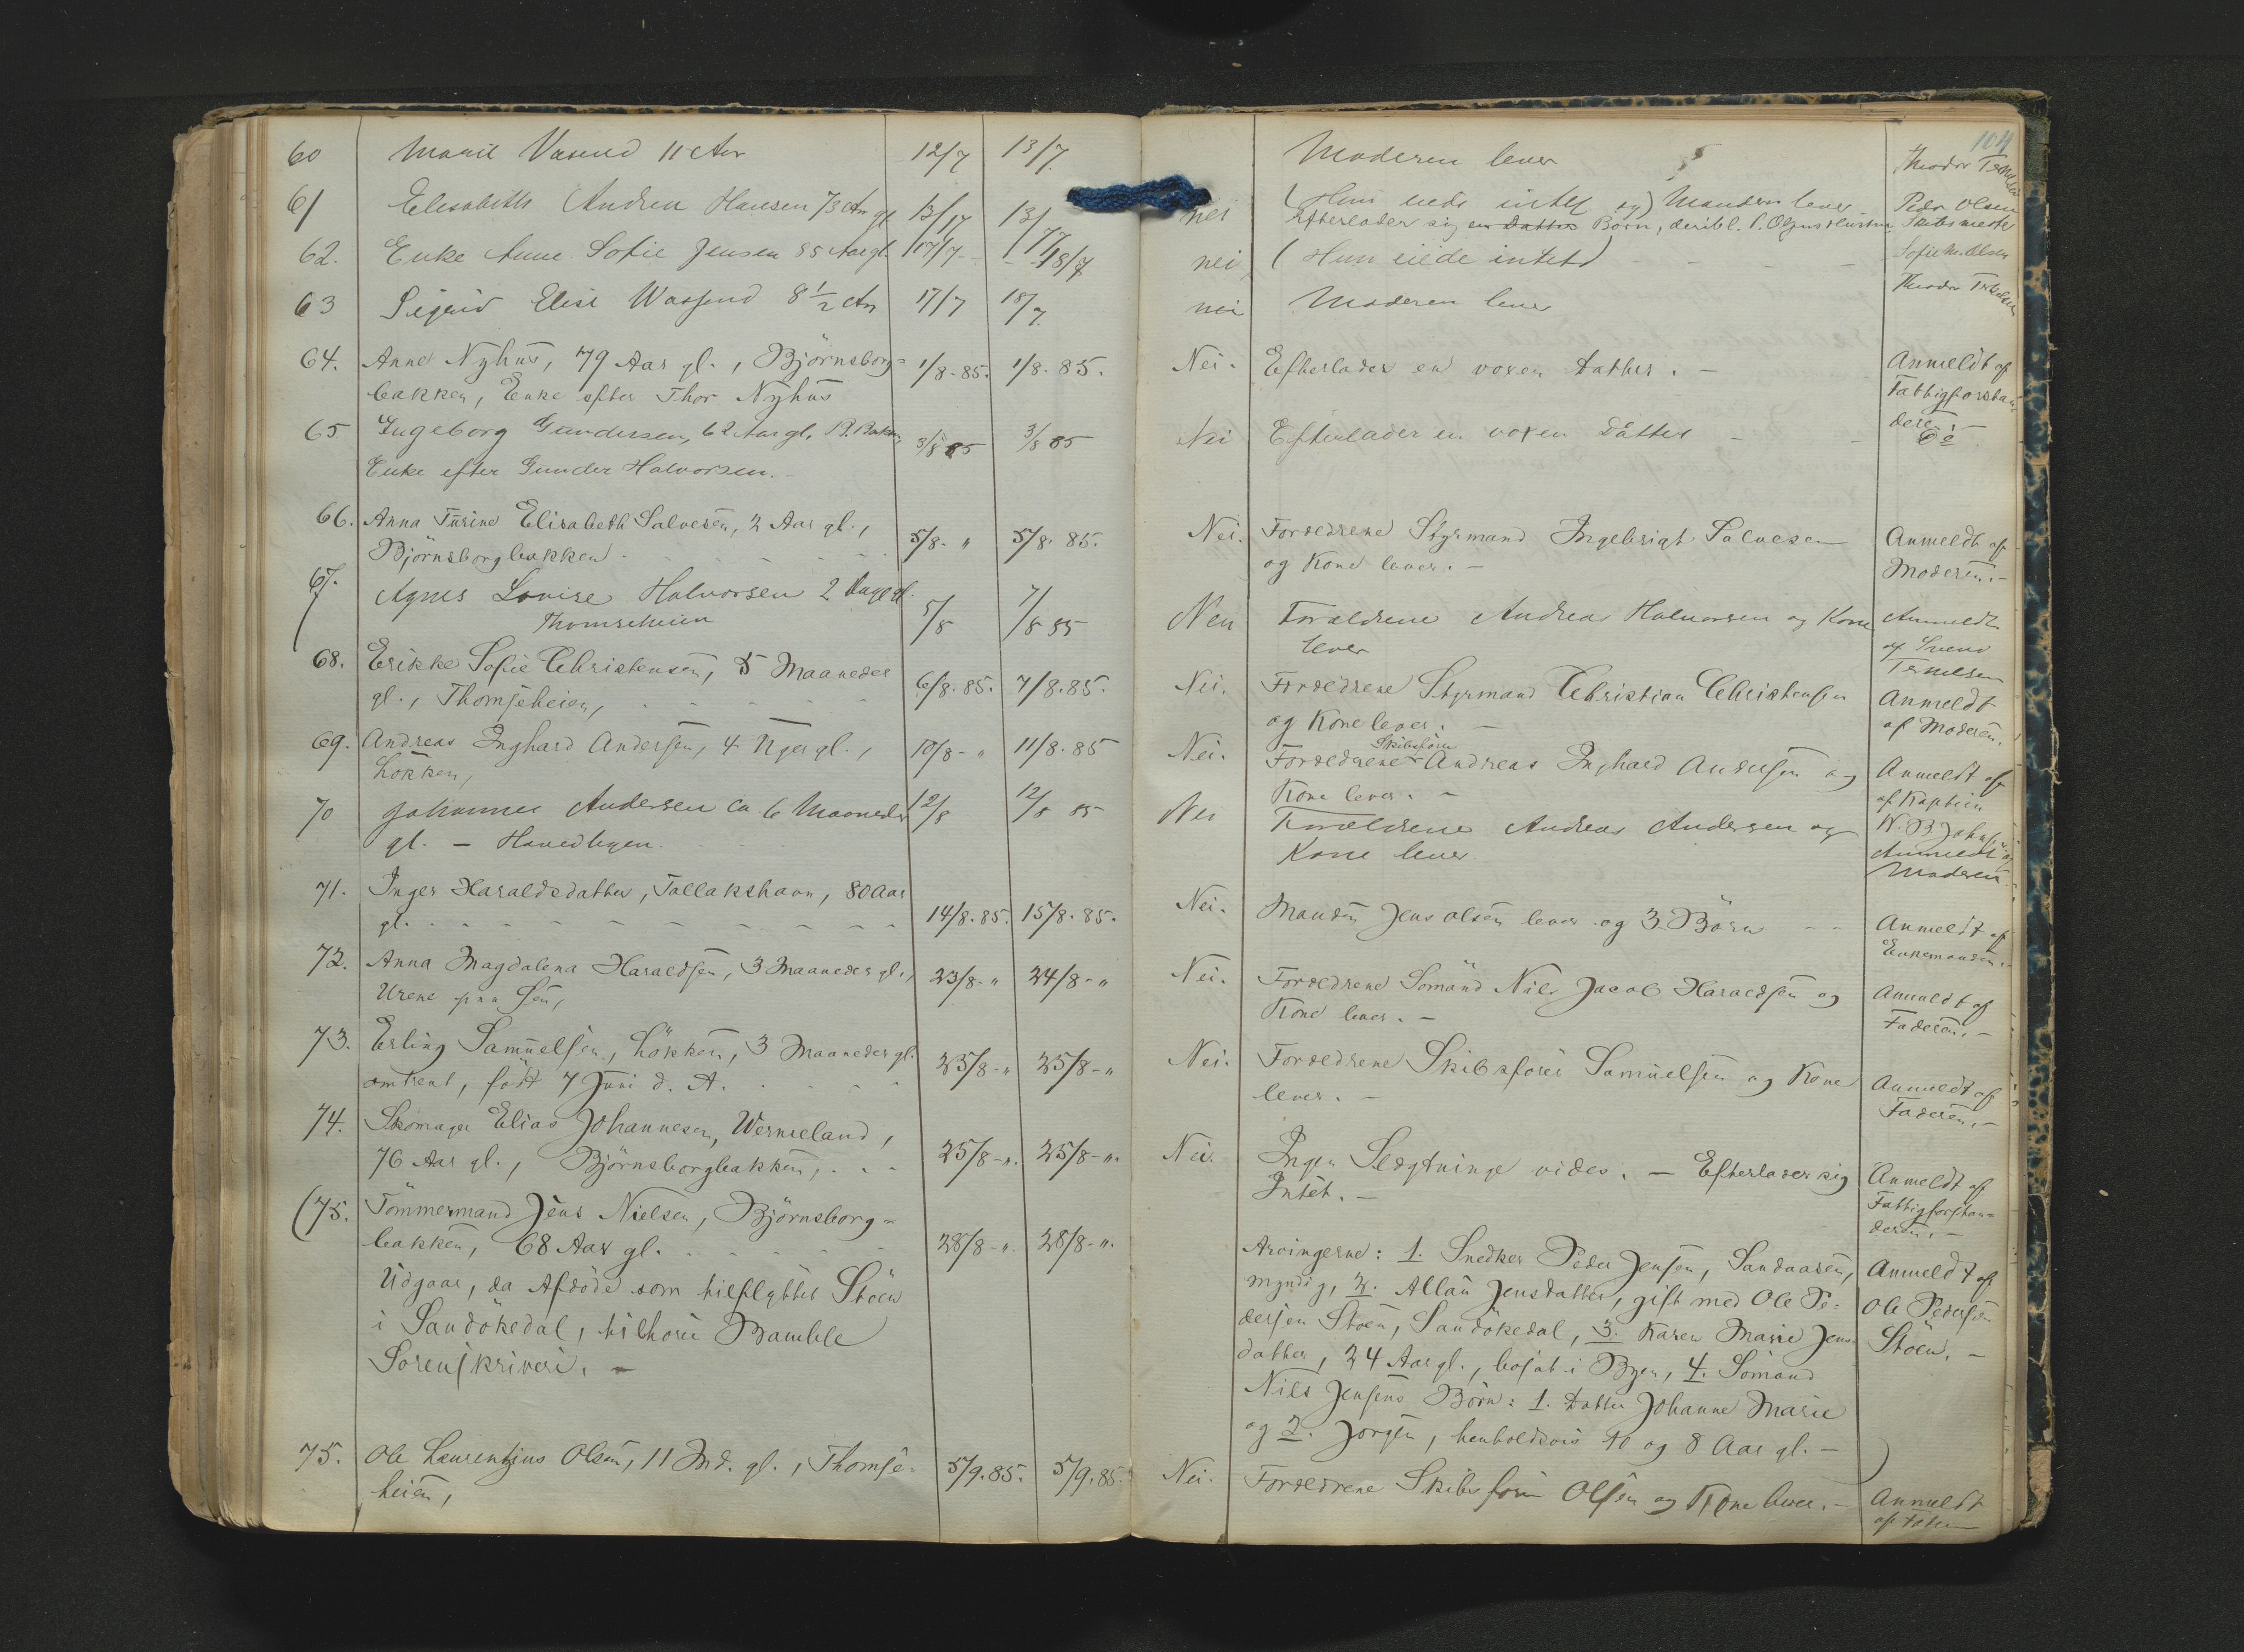 104
60 Marie Vasend 11 Aar 12/7 13/7. Moderen lever Theodor
61 Elisabeth Andrea Hansen 73 Aar gl 13/7 13/7 nei (Hun eiede intet og) Manden lever Peder Olsen
Efterlader sig en Datter Børn, deribl. P. Olsens Hustru. Skibsmester
62. Enke Anne Sofie Jensen 85 Aar gl. 17/7 - 18/7 nei (Hun eiede intet) - - - Sofie M. Olsen
63 Sigrid Elise Wassend 8 1/2 Aar 17/7 18/7 nei Moderen lever Theodor
64. Anne Nyhus, 79 Aar gl., Björnsborg= 1/8-85. 1/8. 85. Nei. Efterlader en voxen Datter. - Anmeldt af
bakken, Enke efter Thor Nyhus Fattigforstan=
deren. -
65 Ingeborg Gundersen, 62 Aar gl. B. Bakken 3/8 85 3/8 85 Nei Efterlader en voxen Datter - - Do
Enke efter Gunder Halvorsen. -
66. Anna Turine Elisabeth Salvesen, 2 Aar gl., 5/8- " 5/8. 85. Nei. Foreldrene Styrmand Ingebrigt Salvesen Anmeldt af
Björnsborgbakken og Kone lever. - Moderen. -
67. Agnes Lovise Halvorsen 2 Dage gl. 5/8 7/8 85 Nei Foreldrene Andreas Halvorsen og Kone Anmeldt
Thomseheien lever af Svend
Terkelsen
68. Erikke Sofie Christensen, 5 Maaneder 6/8. 85. 7/8. 85. Nei. Foreldrene Styrmand Christian Christensen Anmeldt
gl., Thomseheien, og Kone lever. - af Moderen.
69. Andreas Inghard Andersen, 4 Uger gl., 10/8- " 11/8. 85 Nei. Foreldrene Skibsförer Andreas Inghard Andersen og Anmeldt af
Løkken, Kone lever. - af Kaptein
70 Johannes Andersen ca 6 Maaneder 12/8 12/8 85 Nei Foreldrene Andreas Andersen og Anmeldt af
gl. - Kone lever Moderen
71. Inger Haraldsdatter, Tallakshavn, 80 Aar 14/8. 85. 15/8. 85. Nei. Manden Jens Olsen lever og 3 Børn - - Anmeldt af
gl. Enkemanden. -
72. Anna Magdalena Haraldsen, 3 Maaneder gl., 23/8- " 24/8- " Nei. Foreldrene Sömand Nils Jacob Haraldsen og Anmeldt af
Urene paa Öen, Kone lever. - Faderen. -
73. Erling Samuelsen, Løkken, 3 Maaneder gl. 25/8- " 25/8- " Nei. Foreldrene Skibsförer Samuelsen og Kone Anmeldt af
omtrent, født 7 Juni d. A. lever. - Faderen. -
74. Skomager Elias Johannesen, Wermeland, 25/8- ". 25/8- ". Nei. Ingen Slægtninge vides. - Efterlader sig Anmeldt af
76 Aar gl., Björnsborgbakken, Intet. - Fattigforstan=
deren. -
(75. Tömmermand Jens Nielsen, Björnsborg= 28/8- ". 28/8- ". Arvingerne: 1. Snedker Peder Jensen, Sandaasen, Anmeldt af
bakken, 68 Aar gl. myndig, 2. Allau Jensdatter, gift med Ole Pe= Ole Pedersen
Udgaar, da Afdöde som tilflyttet Stöen dersen Stöen, Sandökedal, 3. Karen Marie Jens= Stöen. -
i Sandökedal, tilhører Bamble datter, 24 Aar gl., bosat i Byen, 4. Sömand
Sorenskriveri. - Nils Jensens Börn: 1. Datter Johanne Marie
og 2. Jorgen, henholdsvis 10 og 8 Aar gl. - )
75. Ole Laurentzius Olsen, 11 Md. gl., Thomse= 5/9. 85. 5/9. 85. Nei. Foreldrene Skibsförer Olsen og Kone lever. - Anmeldt
heien, af Faderen